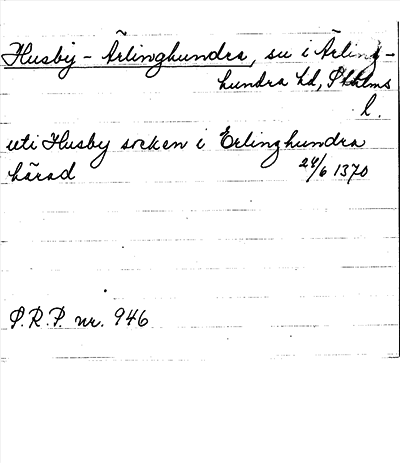 Husby-Ärlinghundra, sn i Ärling-
hundra hd, Sthlms
l.
uti Husby socken i Erlinghundra
härad 24/6 1370
S.R.P. nr. 946